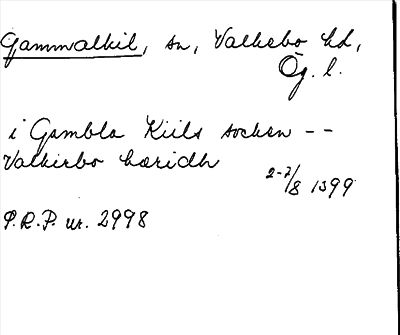 Gammalkil, sn, Valkebo hd,
Ög. l.
i Gambla Kiils socken --
Valkirbo hæridh
2-7/8 1399
P.R.P. nr. 2998